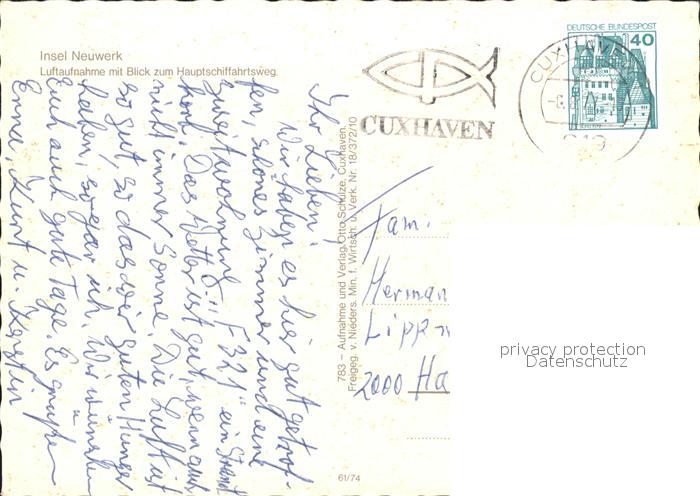 Insel Neuwerk
Luftaufnahme mit Blick zum Hauptschiffahrtsweg.
Ihr Lieben!
Wir haben es hier gut getrof-
fen, schönes Zimmer und eine
zweitwohnung "F 321" ein Strand
korb. Das Wetter ist gut, wenn auch
nicht immer Sonne. Die Luft ist
so gut, so das wir guten Hunger
haben, sogar ich. Wir wünschen
Euch auch gute Tage. Es grüßen
Erna, Kurt u. Kerstin
783 – Aufnahme und Verlag Otto Schulze, Cuxhaven.
Freigeg. v. Nieders. Min. f. Wirtsch. u. Verk. Nr. 18/372/10
61/74
CUXHAVEN
CUXHAVEN
DEUTSCHE BUNDESPOST
40
Fam.
Herman
Lipp
2000 Ha
privacy protection
Datenschutz